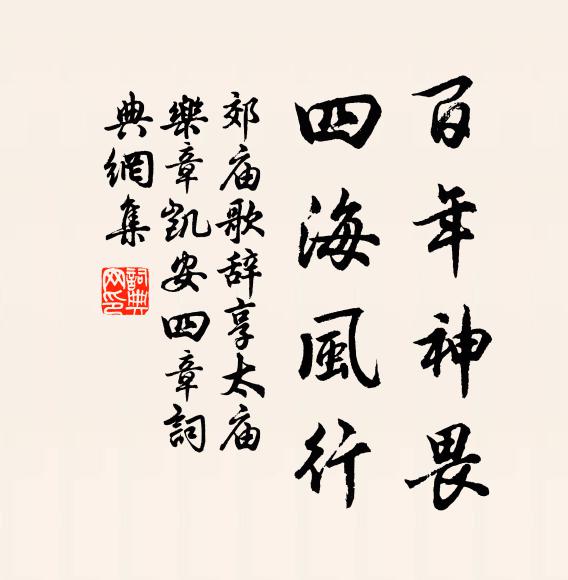 百年神畏
四海風行
郊庙歌辞享太庙
樂章凱安四章詞
典網集
詞典網印